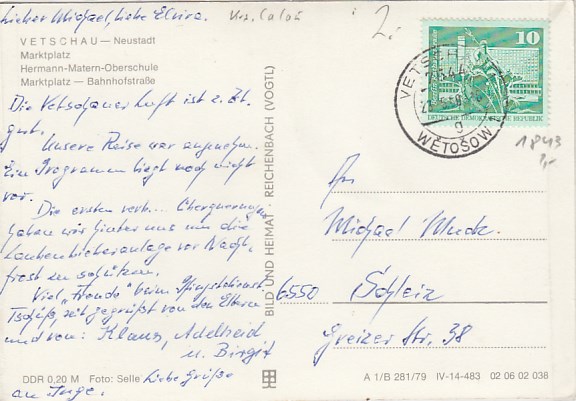 Lieber Michael, liebe Elvira.
VETSCHAU — Neustadt
Marktplatz
Hermann-Matern-Oberschule
Marktplatz — Bahnhofstraße
Die Vetschauer Luft ist z. Zt.
gut. Unsere Reise war angenehm.
Ein Programm liegt noch nicht
vor.
Die ersten
haben wir hinter uns um die
vor Nacht-
frost zu schützen.
Viel „Freude“ beim Pfingstdienst
Tschüß, seid gegrüßt von den Eltern
und von: Klaus, Adelheid
u. Birgit
Liebe Grüße
an Inge.
DDR 0,20 M Foto: Selle
BILD UND HEIMAT · REICHENBACH (VOGTL)
2,-
10
DEUTSCHE DEMOKRATISCHE REPUBLIK
VETSCHAU
7544
g
WETOŠOW
1843
An
Michael Muck.
6550 Schleiz
Greizer Str. 38
A 1/B 281/79 IV-14-483 02 06 02 038